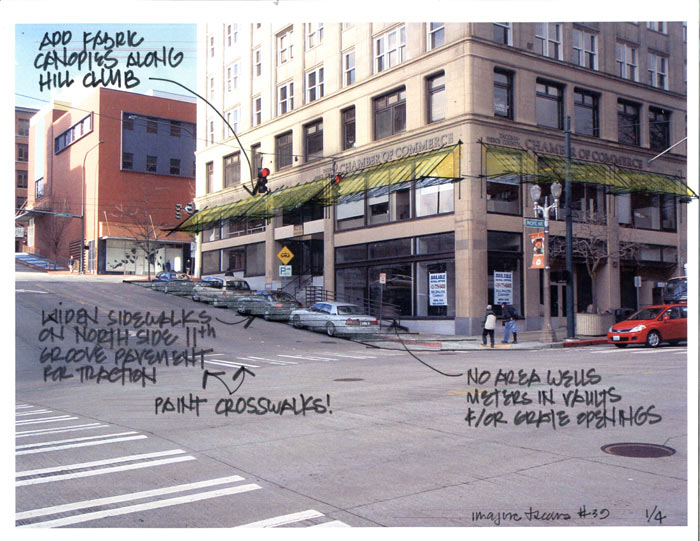 ADD FABRIC
CANOPIES ALONG
HILL CLIMB
CHAMBER OF COMMERCE
CHAMBER OF COMMERCE
AVAILABLE
AVAILABLE
WIDEN SIDEWALKS
ON NORTH SIDE 11th
GROOVE PAVEMENT
FOR TRACTION
PAINT CROSSWALKS!
NO AREA WELLS
METERS IN VAULTS
&/OR GRATE OPENINGS
imagine tacoma #39
1/4